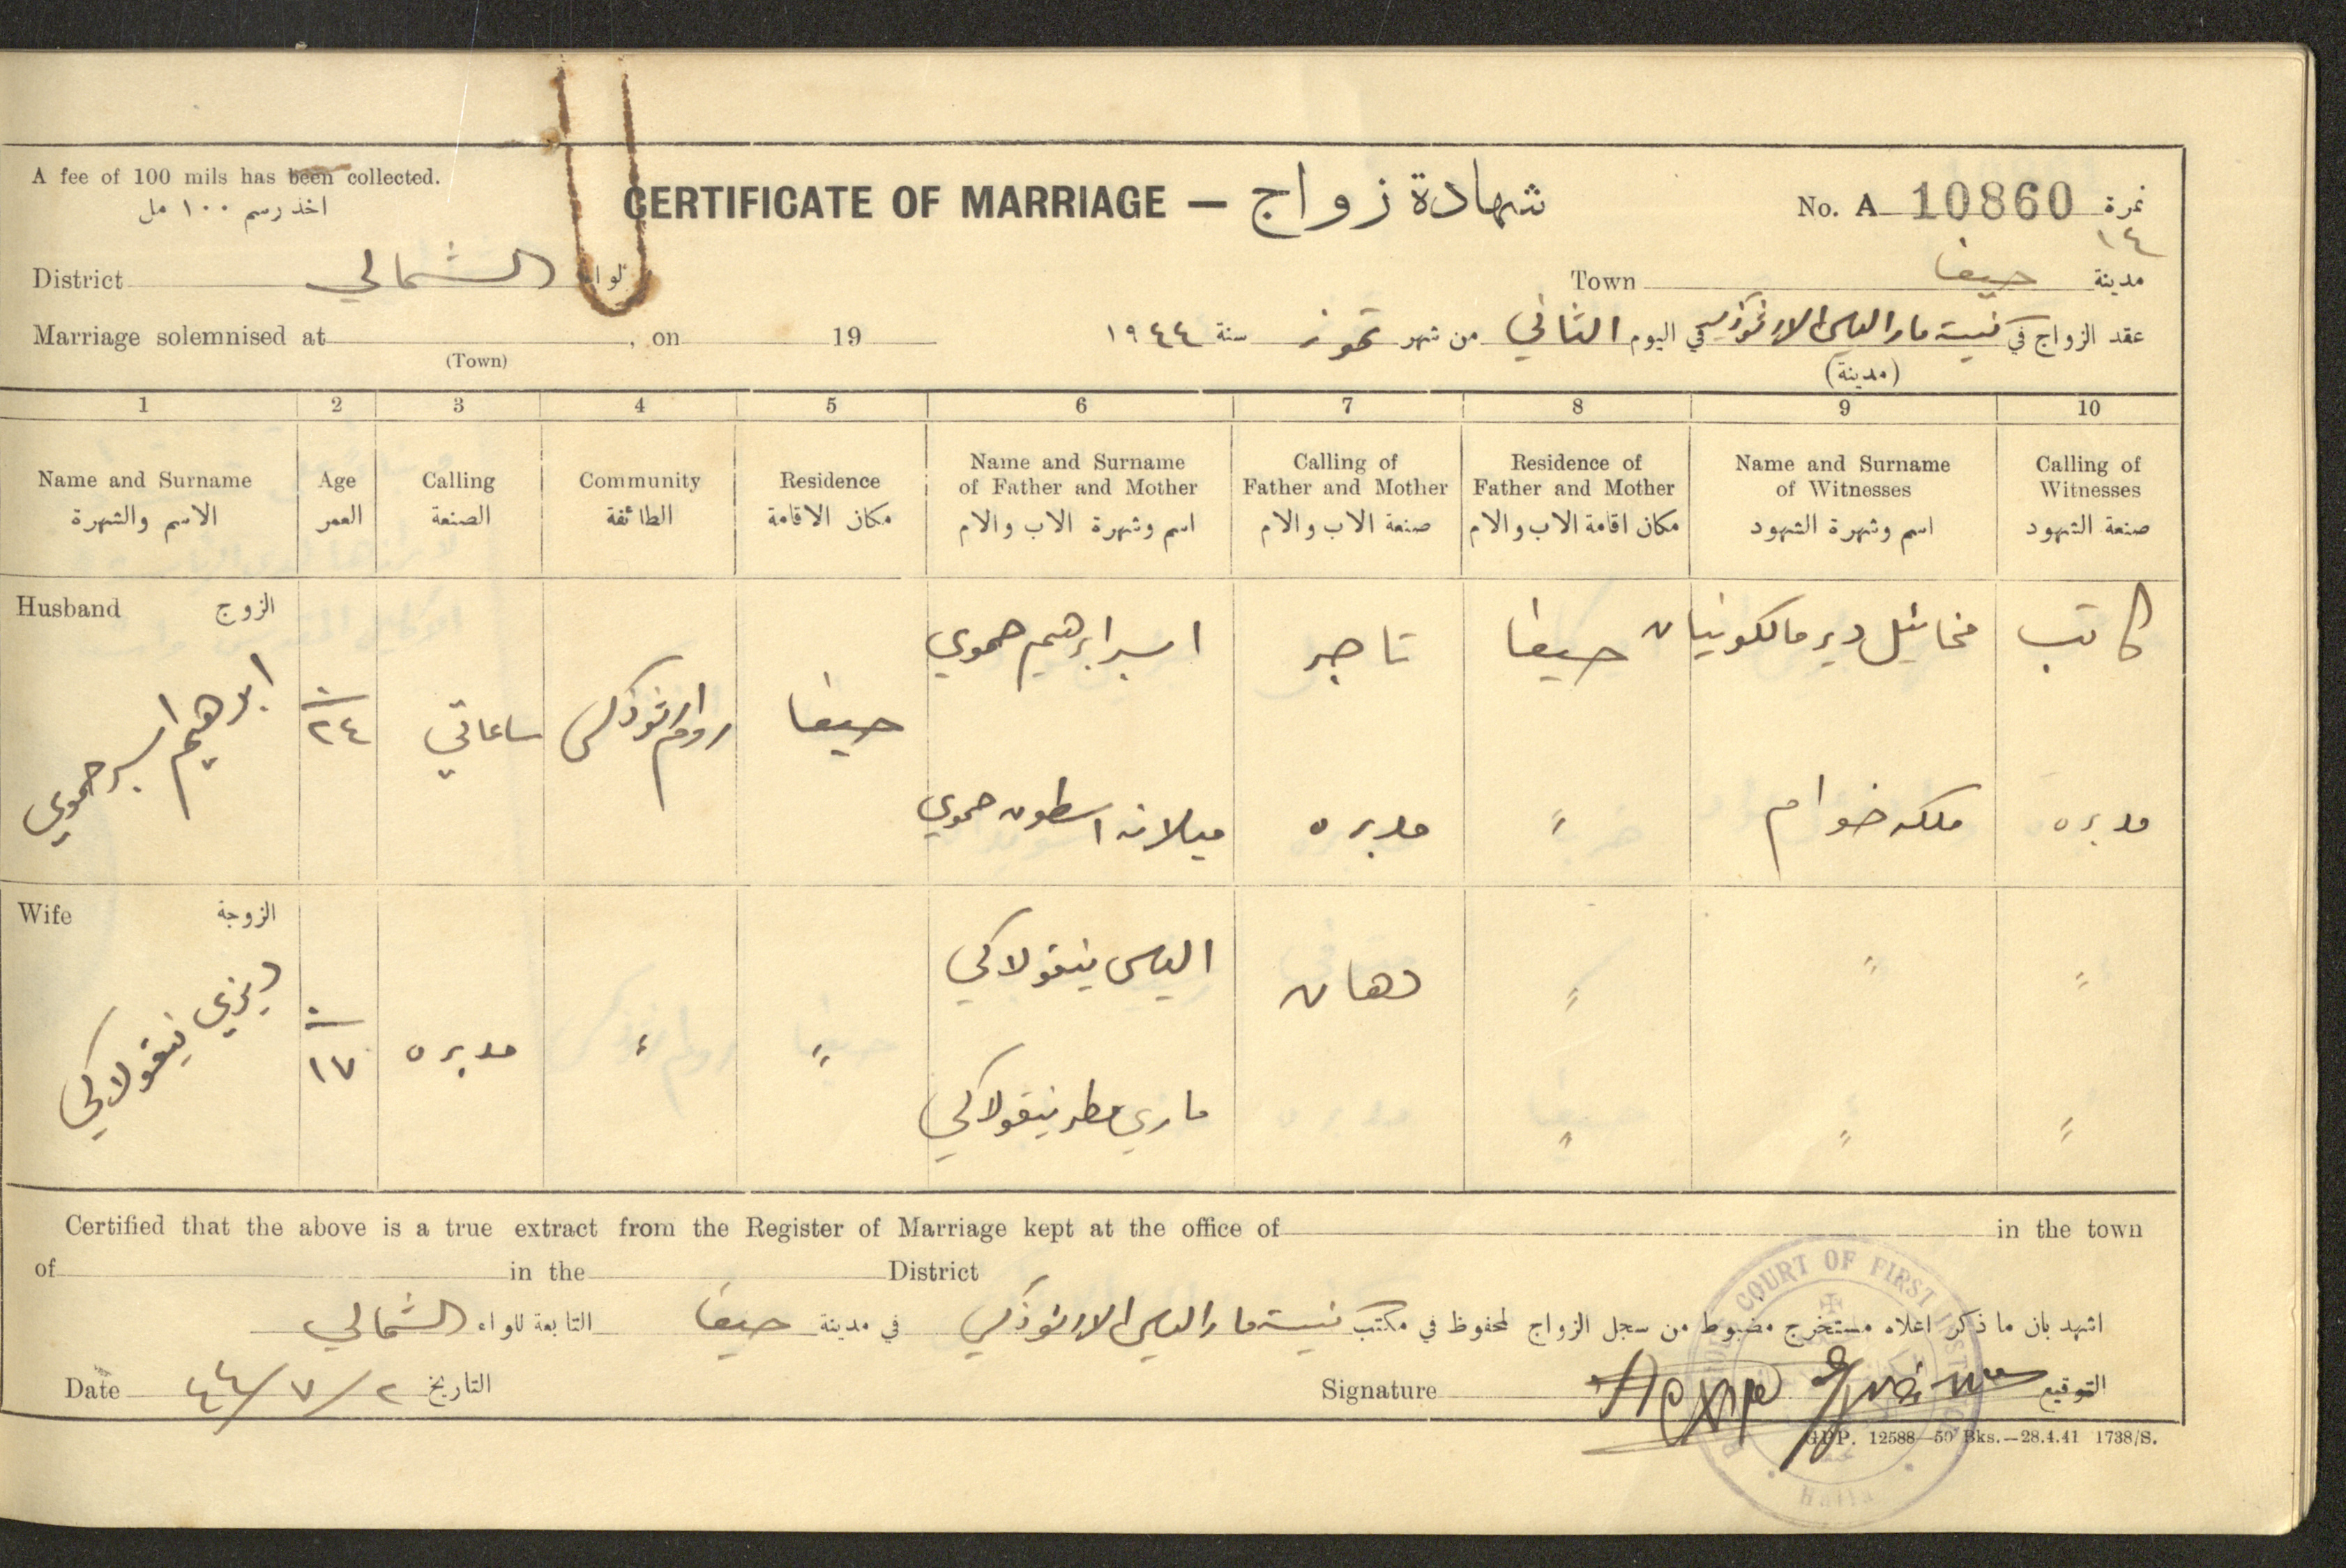 A fee of 100 mils has been collected.
اخذ رسم ١٠٠ مل
CERTIFICATE OF MARRIAGE — شهادة زواج
No. A 10860 نمرة
١٤
District الشمالي لواء
Town حيفا مدينة
Marriage solemnised at , on 19
(Town)
عقد الزواج في كنيسة مار الياس الارثوذكسي في اليوم الثاني من شهر تموز سنة ١٩٤٤
(مدينة)
1 2 3 4 5 6 7 8 9 10
Name and Surname
الاسم والشهرة
Age
العمر
Calling
الصنعة
Community
الطائفة
Residence
مكان الاقامة
Name and Surname
of Father and Mother
اسم وشهرة الاب والام
Calling of
Father and Mother
صنعة الاب والام
Residence of
Father and Mother
مكان اقامة الاب والام
Name and Surname
of Witnesses
اسم وشهرة الشهود
Calling of
Witnesses
صنعة الشهود
Husband الزوج
ابرهيم اسبر حموي
٢٤
ساعاتي
روم ارثوذكس
حيفا
اسبر ابرهيم حموي
تاجر
حيفا
مخائيل دير مالكونيان
كاتب
اسطون حموي
مدبره
"
ملكه خوام
مدبره
Wife الزوجة
ديزي نيقولاكي
١٧
مدبره
"
"
الياس نيقولاكي
دهان
"
"
"
ماري مطر نيقولاكي
"
"
"
Certified that the above is a true extract from the Register of Marriage kept at the office of in the town
of in the District
اشهد بان ما ذكر اعلاه مستخرج مضبوط من سجل الزواج المحفوظ في مكتب كنيسة مار الياس الارثوذكسي في مدينة حيفا التابعة للواء الشمالي
Date ٢/٧/٤٤ التاريخ
Signature التوقيع
COURT OF FIRST INST
Haifa
GPP. 12588—50 Bks.—28.4.41 1738/S.